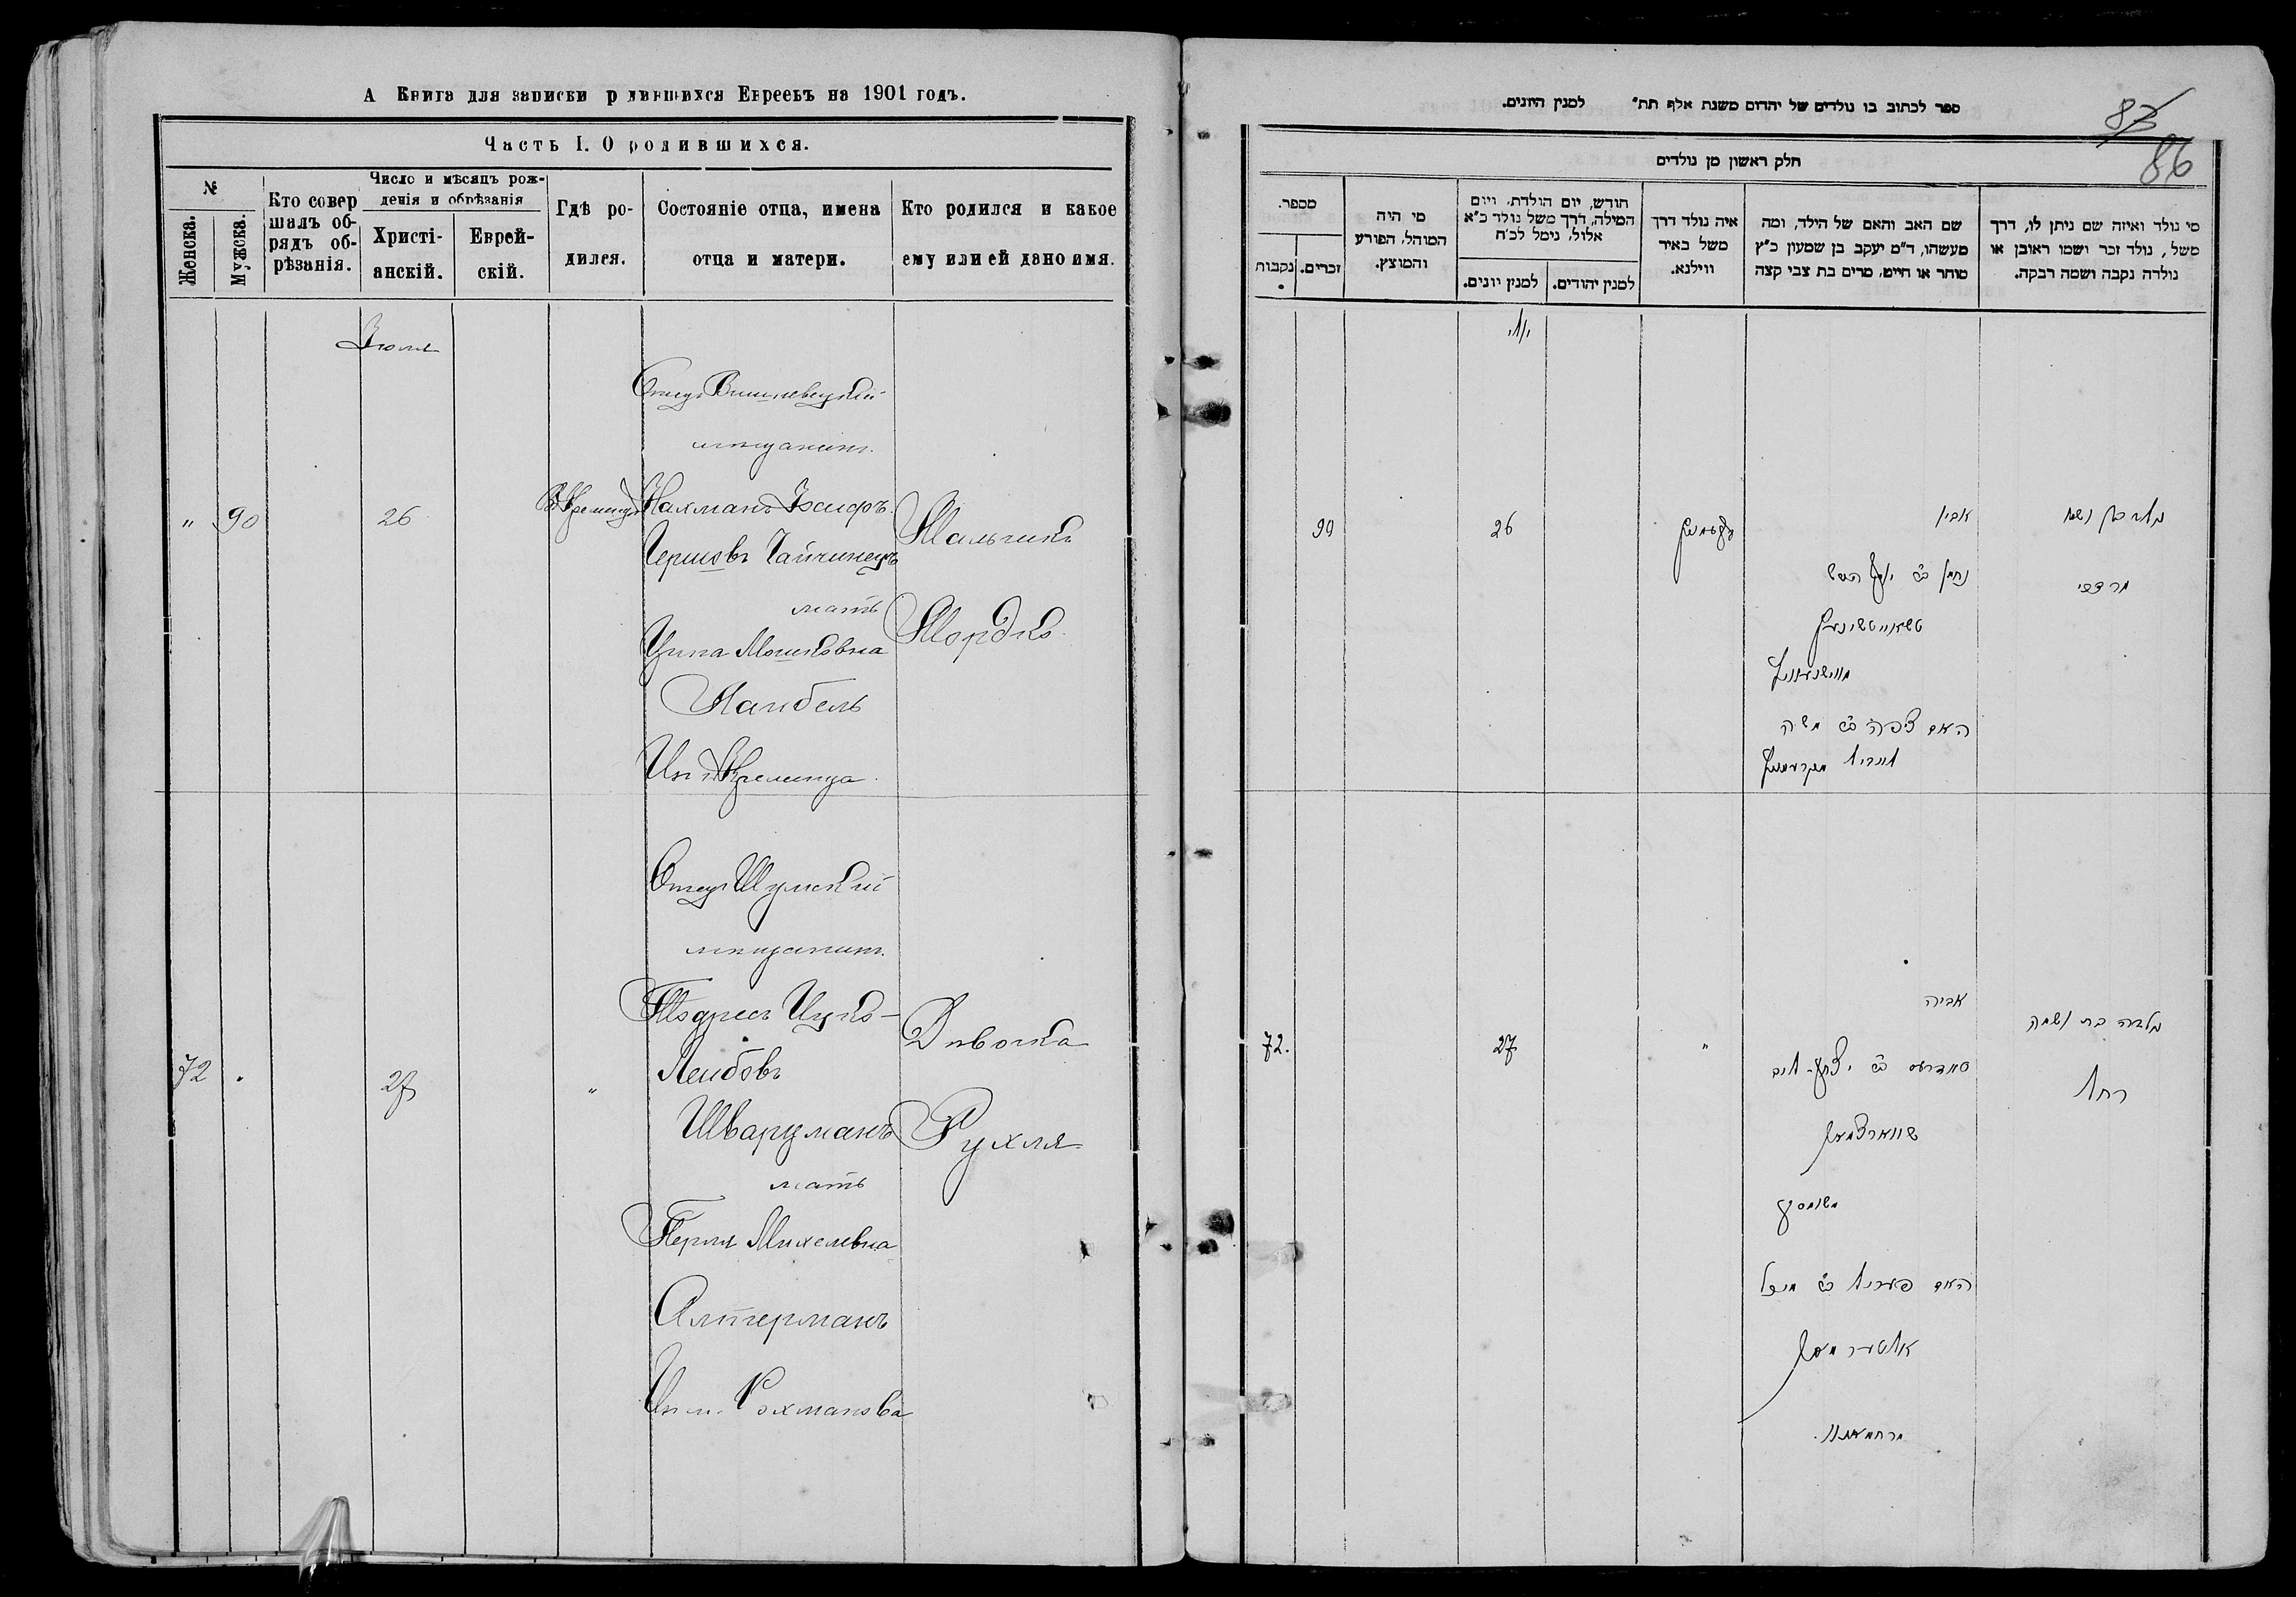 А Книга для записки р дившихся Евреевъ на 1901 годъ.
Часть I. О родившихся.
№
Женска.
Мужска.
Кто совер
шалъ об-
рядъ об-
рѣзанія.
Число и мѣсяцъ рож-
денія и обрѣзанія
Христі-
анскій.
Еврей-
скій.
Гдѣ ро-
дился.
Состояніе отца, имена
отца и матери.
Кто родился и какое
ему или ей дано имя.
Іюля
Отецъ Вишневецкій
мѣщанинъ
" 90 26
Нахманъ Іосифъ
Гершовъ Чайчинецъ
мать
Ципа Мошковна
Ландель
Из г. Кременца
Мальчикъ
Мордко
Отецъ Шумскій
мѣщанинъ
72 " 27 "
Тодресъ Ицко-
Лейбовъ
Шварцманъ
мать
Перля Михелевна
Алтерманъ
Из м. Рохманова
Дѣвочка
Рухля
ספר לכתוב בו נולדים של יהדום משנת אלף תת" למנין היונים.
83
86
חלק ראשון מן נולדים
מספר.
נקבות
זכרים.
מי היה
המוהל, הפורע
והמוצץ.
חודש, יום הולדת, ויום
המילה, דרך משל נולד כ"א
אלול, נימל לכ'ח
למנין יונים.
למנין יהודים.
איה נולד דרך
משל באיר
ווילנא.
שם האב והאם של הילד, ומה
מעשהו, ד"מ יעקב בן שמעון כ"ץ
סוחר או חייט, מרים בת צבי קצה
מי נולד ואיזה שם ניתן לו, דרך
משל, נולד זכר ושמו ראובן או
נולדה נקבה ושמה רבקה.
יולי
90
26
אביו
טשאייטשינעץ
האם ציפה ב"ר משה
נולד בן ושמו
מרדכי
72.
27
"
אביה
טודרעס ב"ר יצחק-לייב
שווארצמאן
משומסק
האם פערל ב"ר מיכל
אלטערמאן
מרחמאנוו.
נולדה בת ושמה
רחל